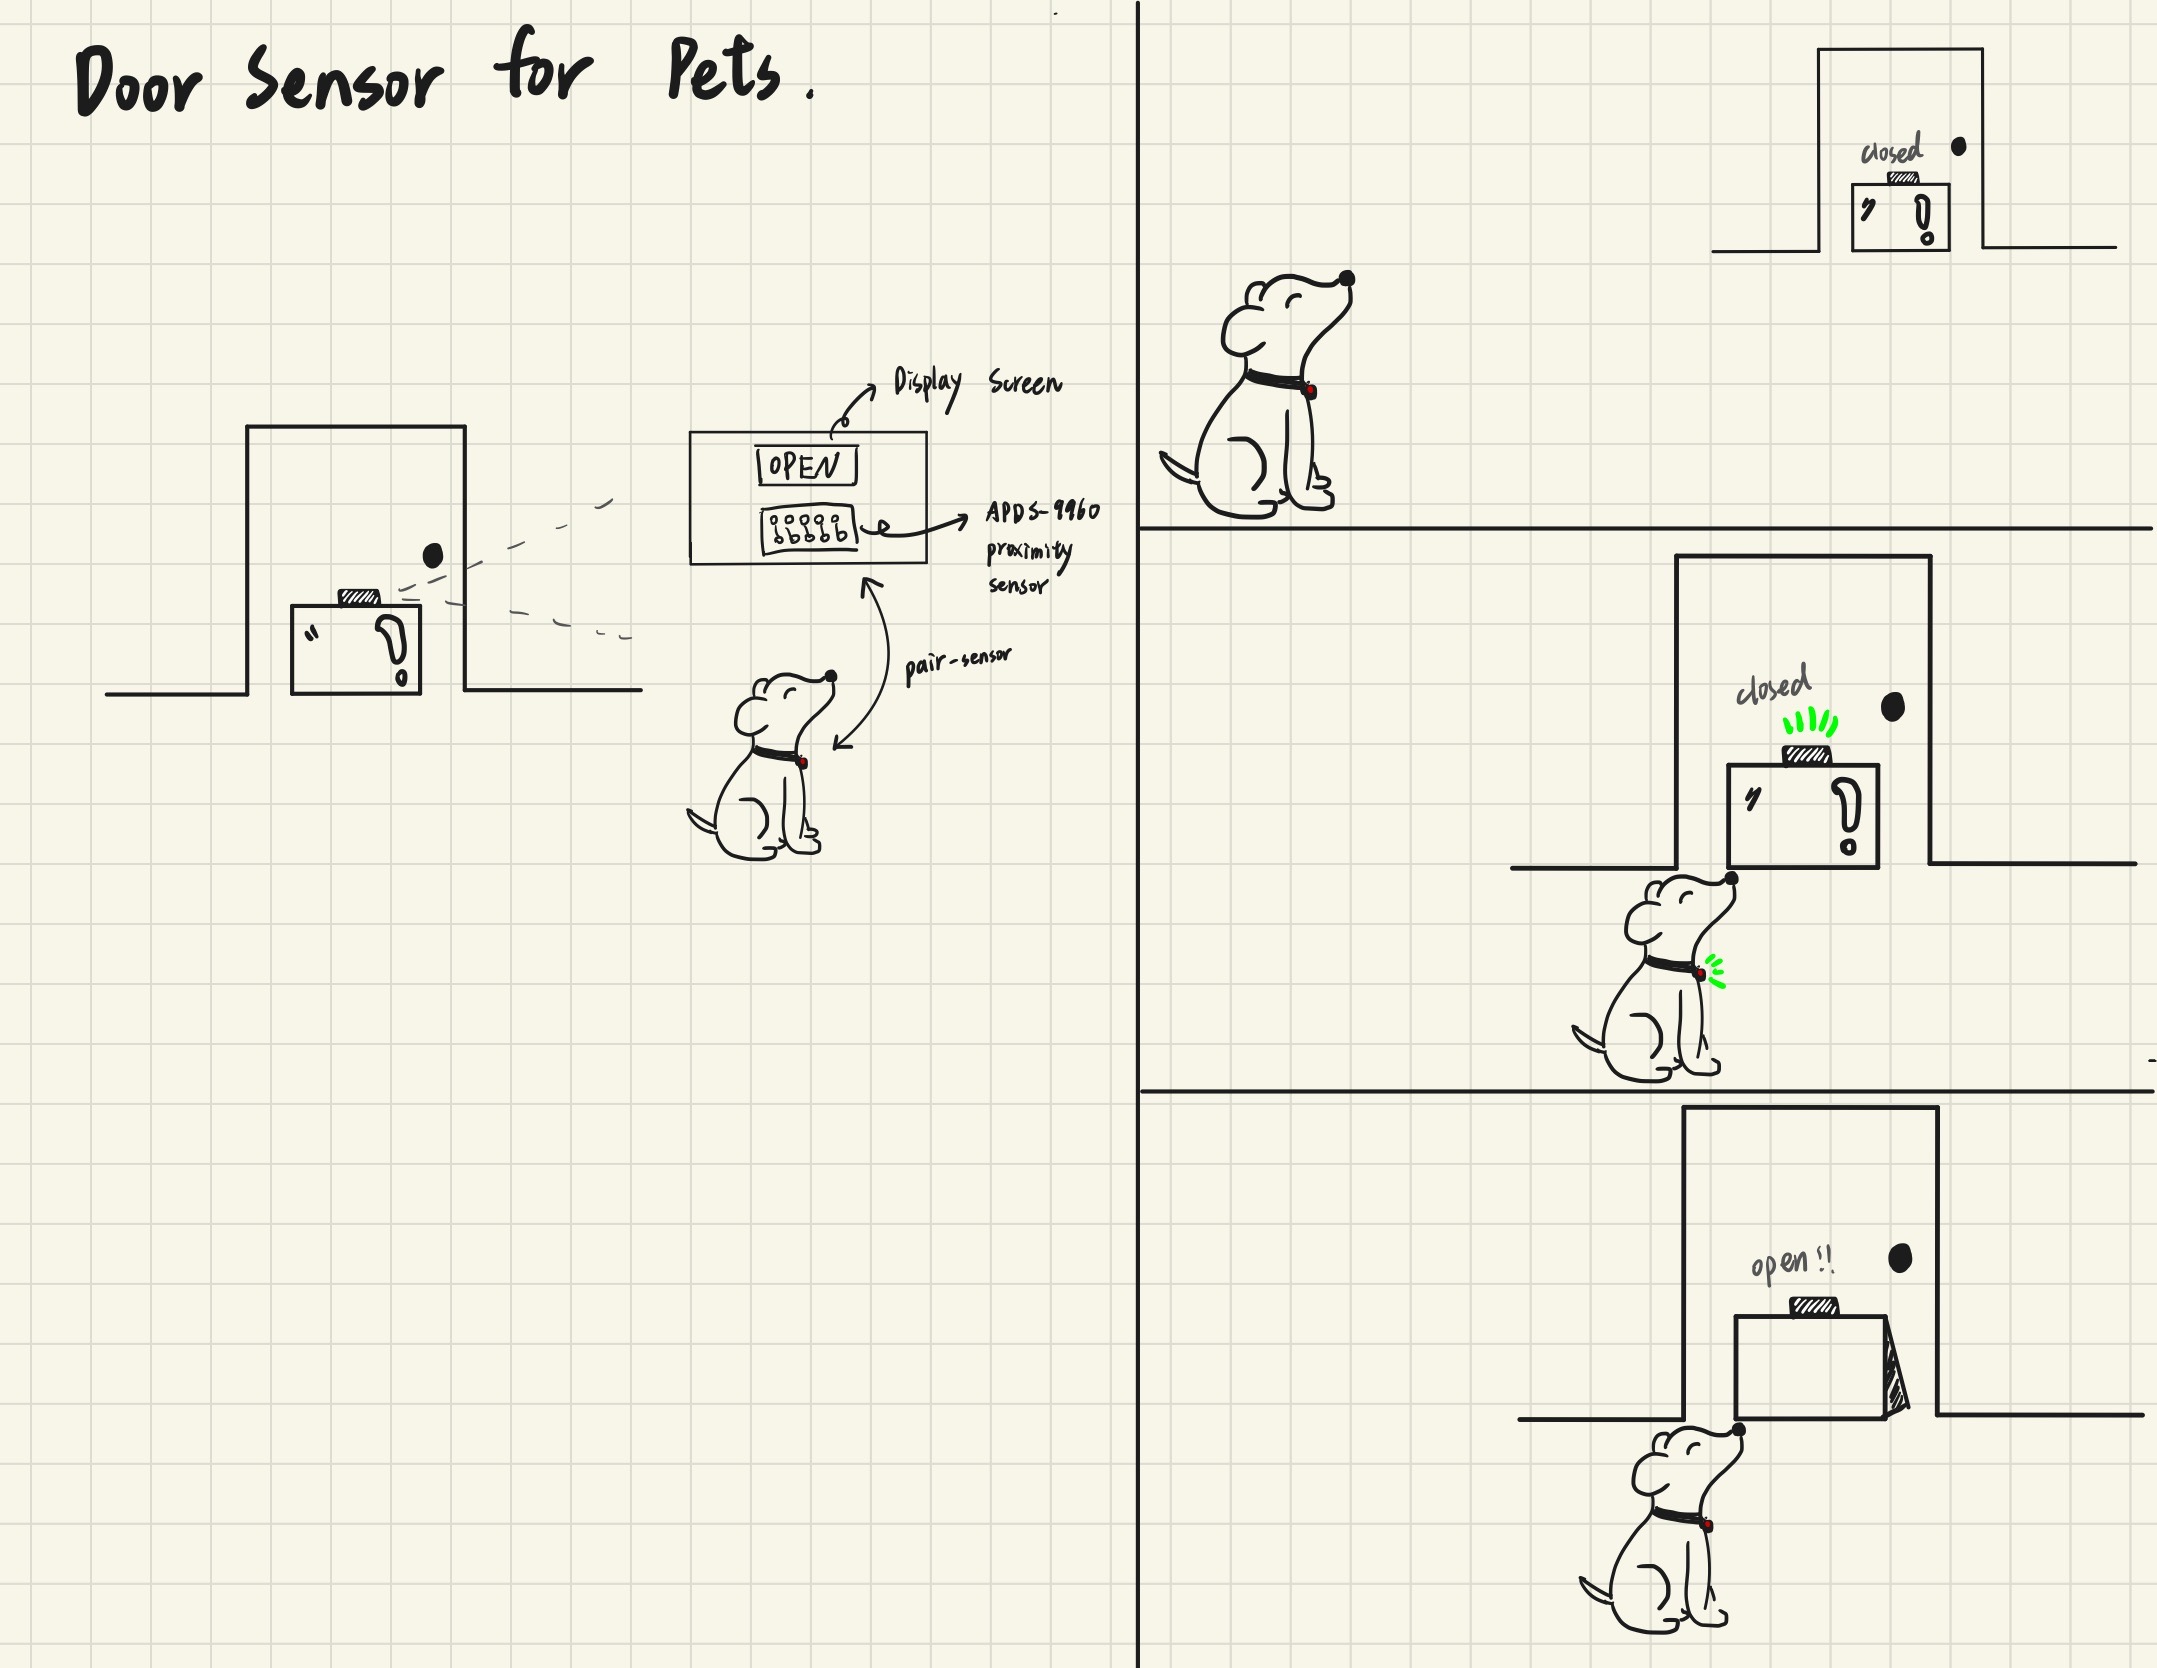 Door Sensor for Pets.
Display Screen
OPEN
APDS-9960
proximity
sensor
pair-sensor
closed
closed
open!!